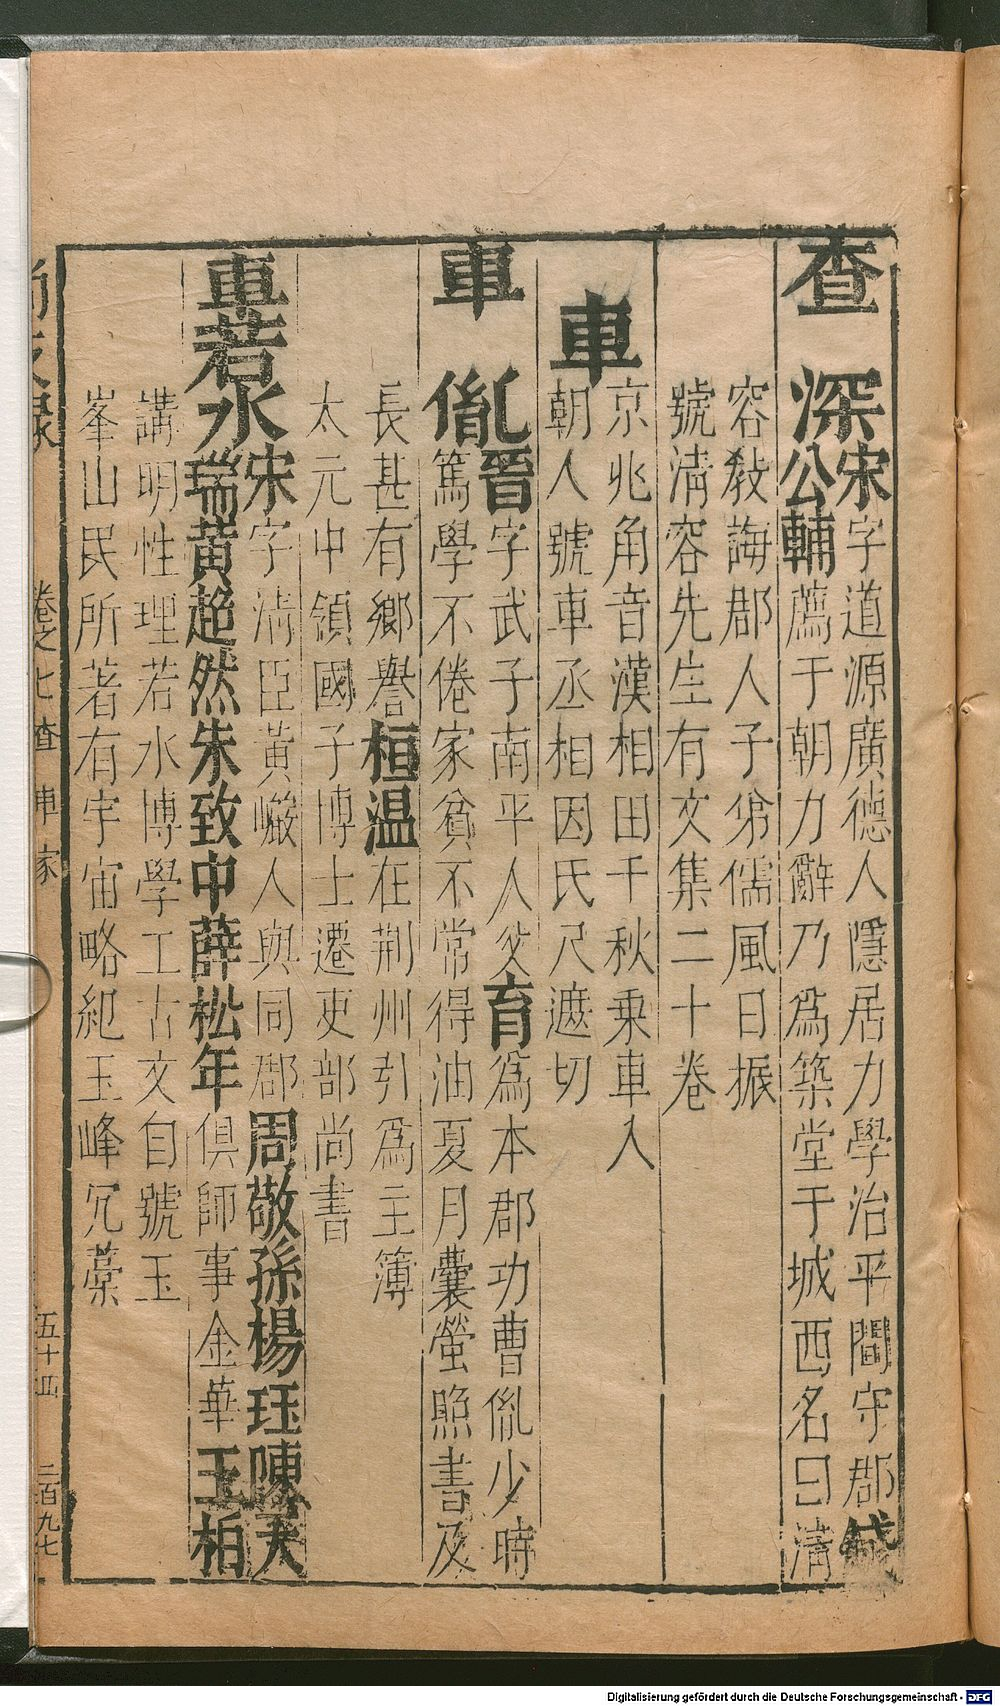 查
深宋字道源廣德人隱居力學治平間守郡錢
公輔薦于朝力辭乃為築堂于城西名曰清
容教誨郡人子弟儒風日振
號清容先生有文集二十卷
車
京兆角音漢相田千秋乗車入
朝人號車丞相因氏尺遮切
車
胤晉字武子南平人父育為本郡功曹胤少時
篤學不倦家貧不常得油夏月囊螢照書及
長甚有鄉譽桓温在荆州引為主簿
太元中領國子博士遷吏部尚書
車若水宋字清臣黃巖人與同郡周敬孫楊珏陳天
瑞黃超然朱致中薛松年俱師事金華王柏
講明性理若水博學工古文自號玉
峯山民所著有宇宙略紀玉峰冗藁
卷之七查 車 家
五十四
二百九七
Digitalisierung gefördert durch die Deutsche Forschungsgemeinschaft - DFG